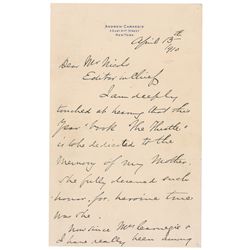 ANDREW CARNEGIE
2 EAST 91ST STREET
NEW YORK
April 13th
1910
Dear Mr
Editor in Chief
I am deeply
touched at hearing that this
Year book "The Thistle"
is to be dedicated to the
Memory of my Mother.
She fully deserved such
honor, for heroine true
was she.
Mrs Carnegie &
I have really been among